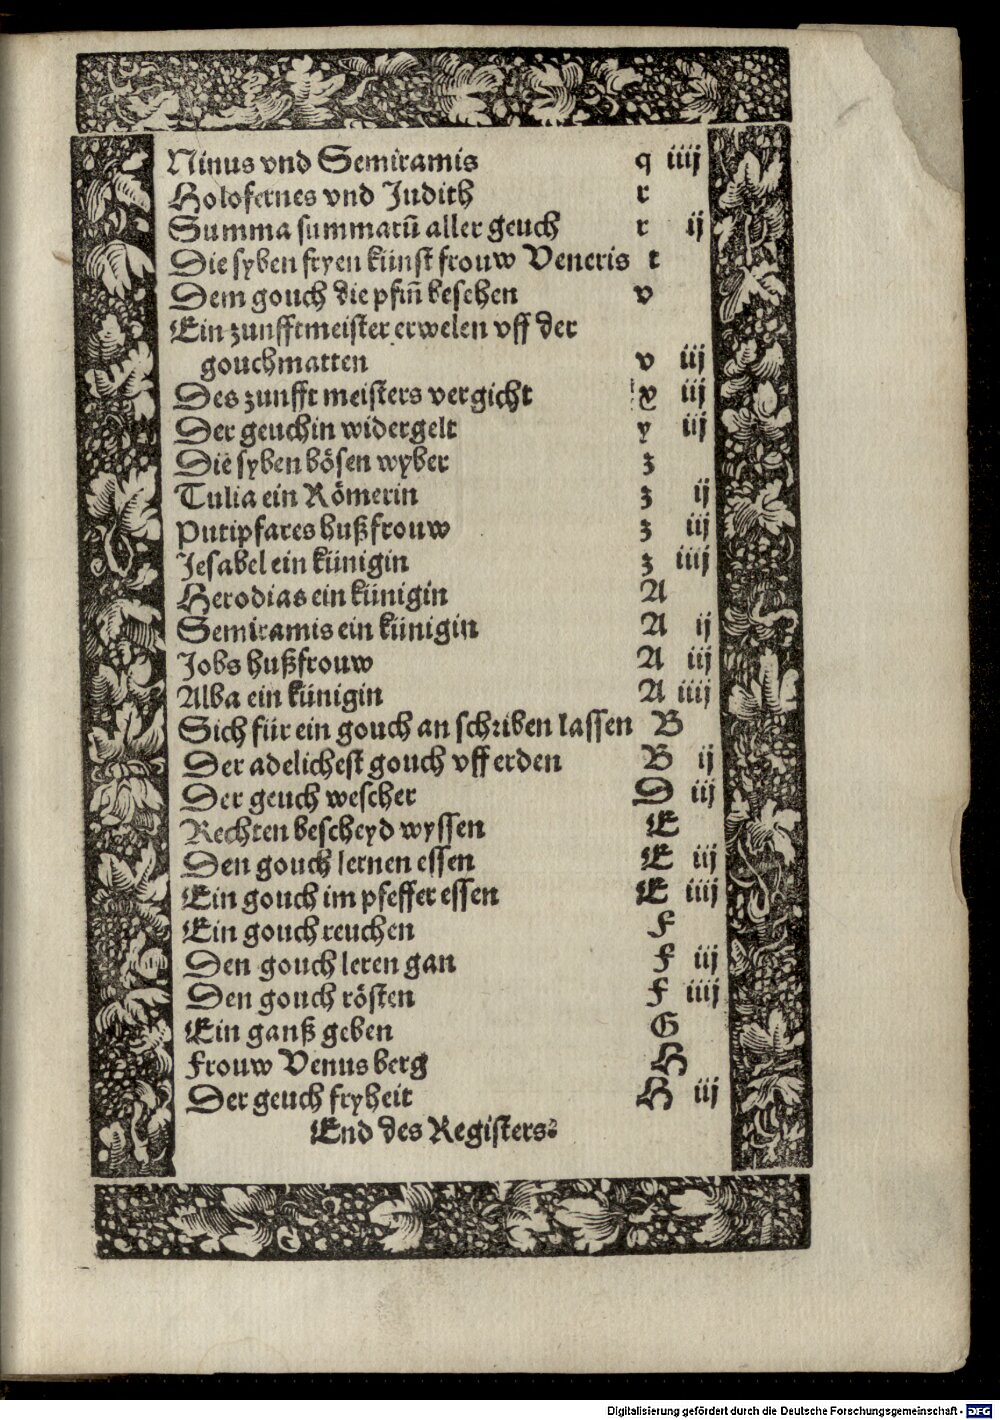 Ninus vnd Semiramis q iiij
Holofernes vnd Judith r
Summa summarū aller geuch r ij
Die syben fryen künst frouw Veneris t
Dem gouch die pfiñ besehen v
Ein zunfftmeister erwelen vff der
gouchmatten v iij
Des zunfft meisters vergicht x iij
Der geuchin widergelt y iij
Die syben bösen wyber z
Tulia ein Römerin z ij
Putipfares hußfrouw z iij
Jesabel ein künigin z iiij
Herodias ein künigin A
Semiramis ein künigin A ij
Jobs hußfrouw A iij
Alba ein künigin A iiij
Sich für ein gouch an schriben lassen B
Der adelichest gouch vff erden B ij
Der geuch wescher D iij
Rechten bescheyd wyssen E
Den gouch lernen essen E iij
Ein gouch im pfeffer essen E iiij
Ein gouch reuchen F
Den gouch leren gan F iij
Den gouch rösten F iiij
Ein ganß geben G
Frouw Venus berg H
Der geuch fryheit H iij
End des Registers
Digitalisierung gefördert durch die Deutsche Forschungsgemeinschaft - DFG